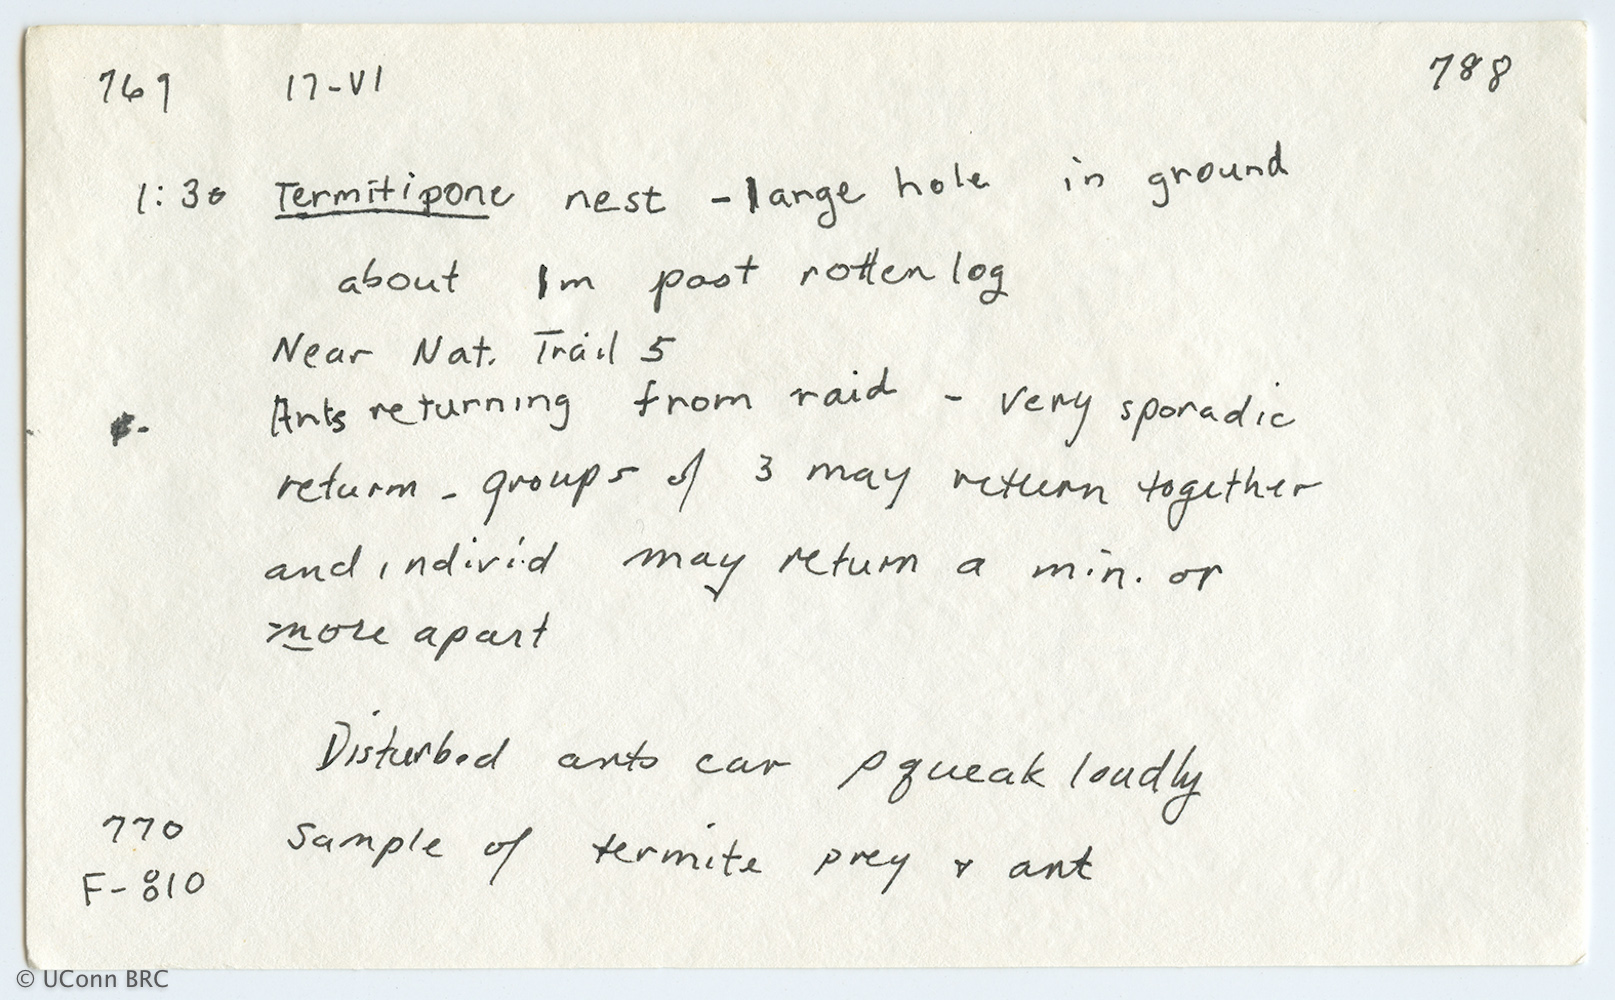 769 17-VI 788
1:30 Termitipone nest - large hole in ground
about 1m past rotten log
Near Nat. Trail 5
Ants returning from raid - very sporadic
return - groups of 3 may return together
and individ may return a min. or
more apart
Disturbed ants can squeak loudly
770 Sample of termite prey & ant
F-810
© UConn BRC